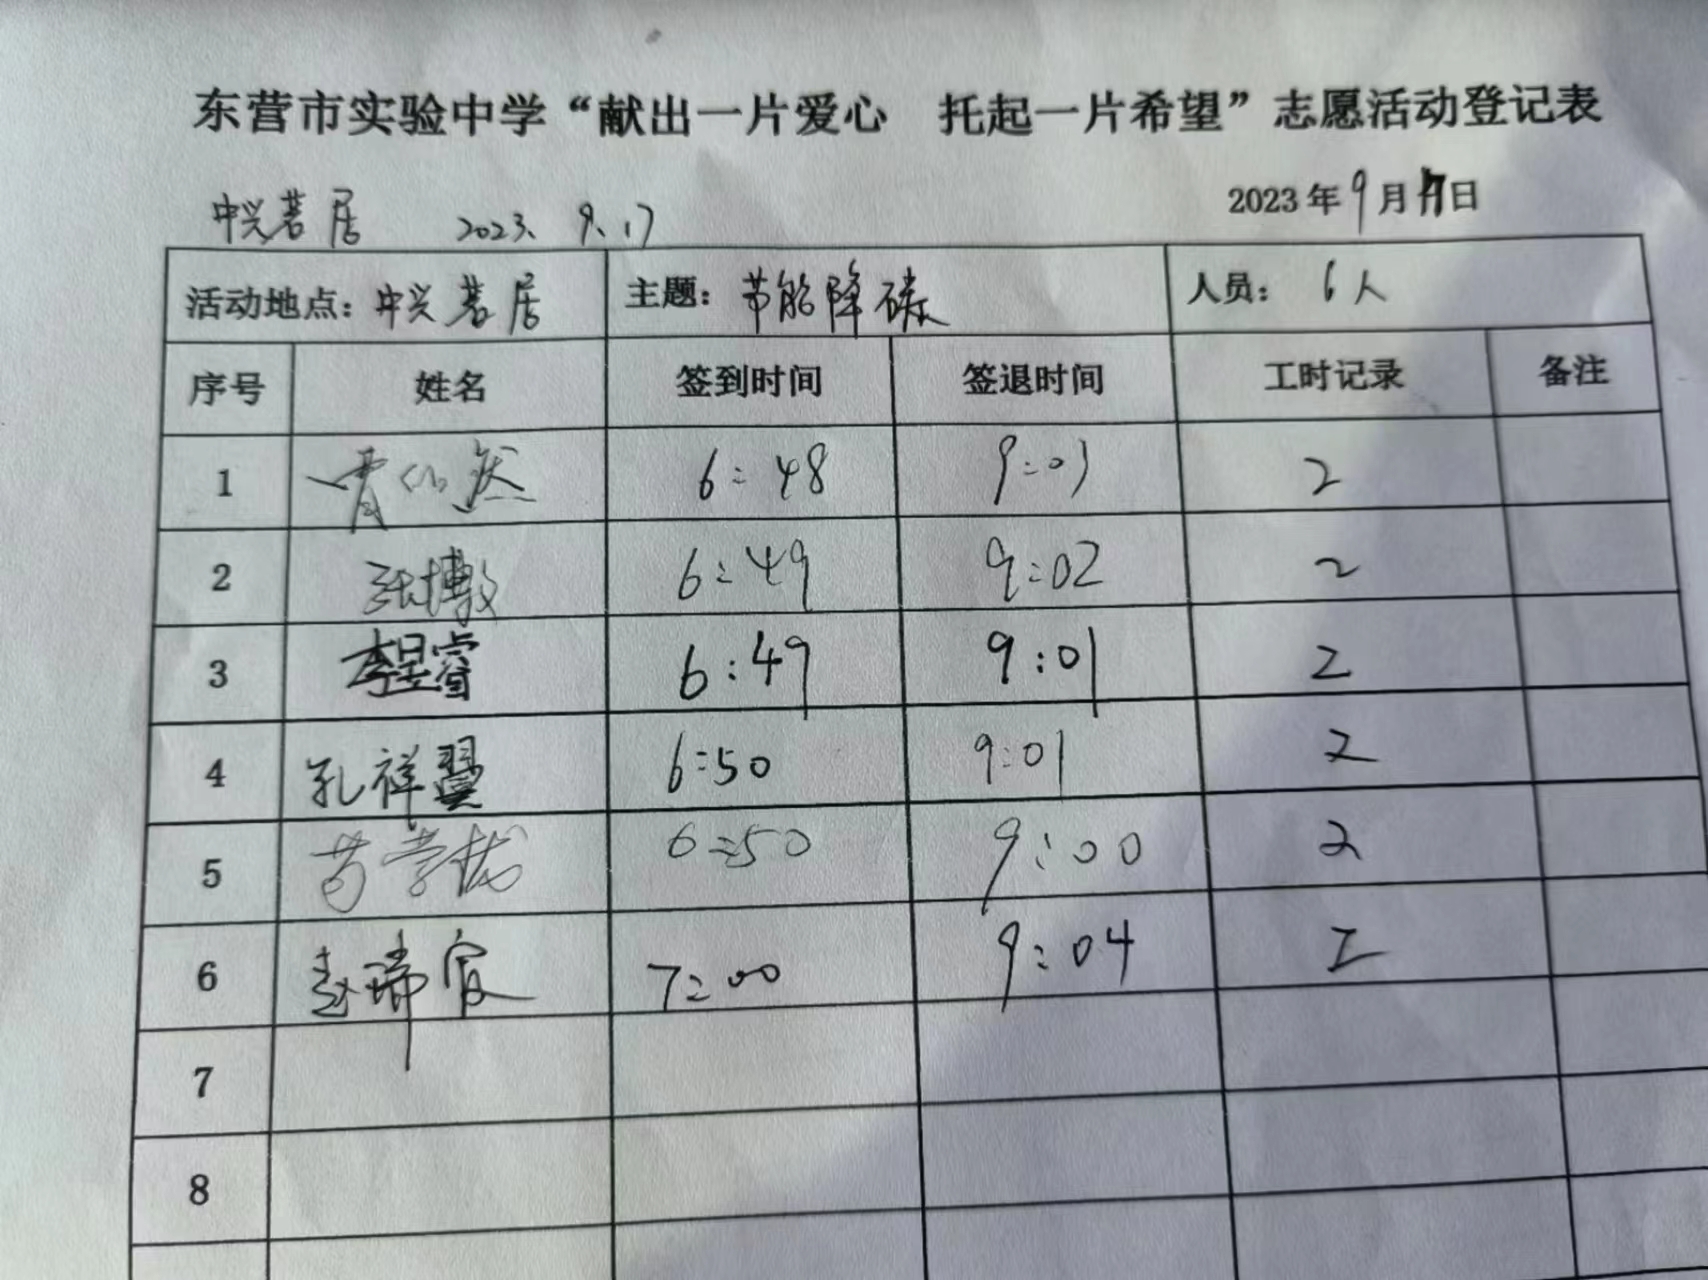 东营市实验中学“献出一片爱心 托起一片希望”志愿活动登记表
2023年9月17日
中兴茗居 2023. 9.17
活动地点：中兴茗居 主题：节能降碳 人员：6人
序号 姓名 签到时间 签退时间 工时记录 备注
1 6:48 9:01 2
2 张博 6:49 9:02 2
3 李昱睿 6:49 9:01 2
4 孔祥翼 6:50 9:01 2
5 6:50 9:00 2
6 赵瑞宜 7:00 9:04 2
7
8